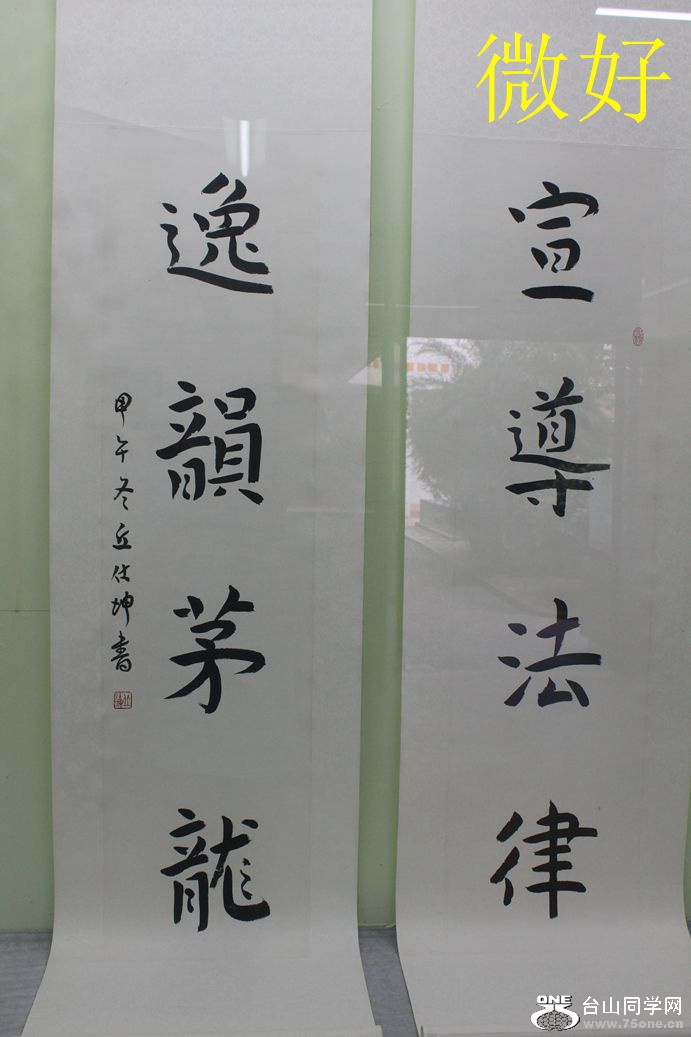 微好
宣導法律
逸韻茅龍
甲午冬丘仕坤書
ONE
台山同学网
www.75one.cn